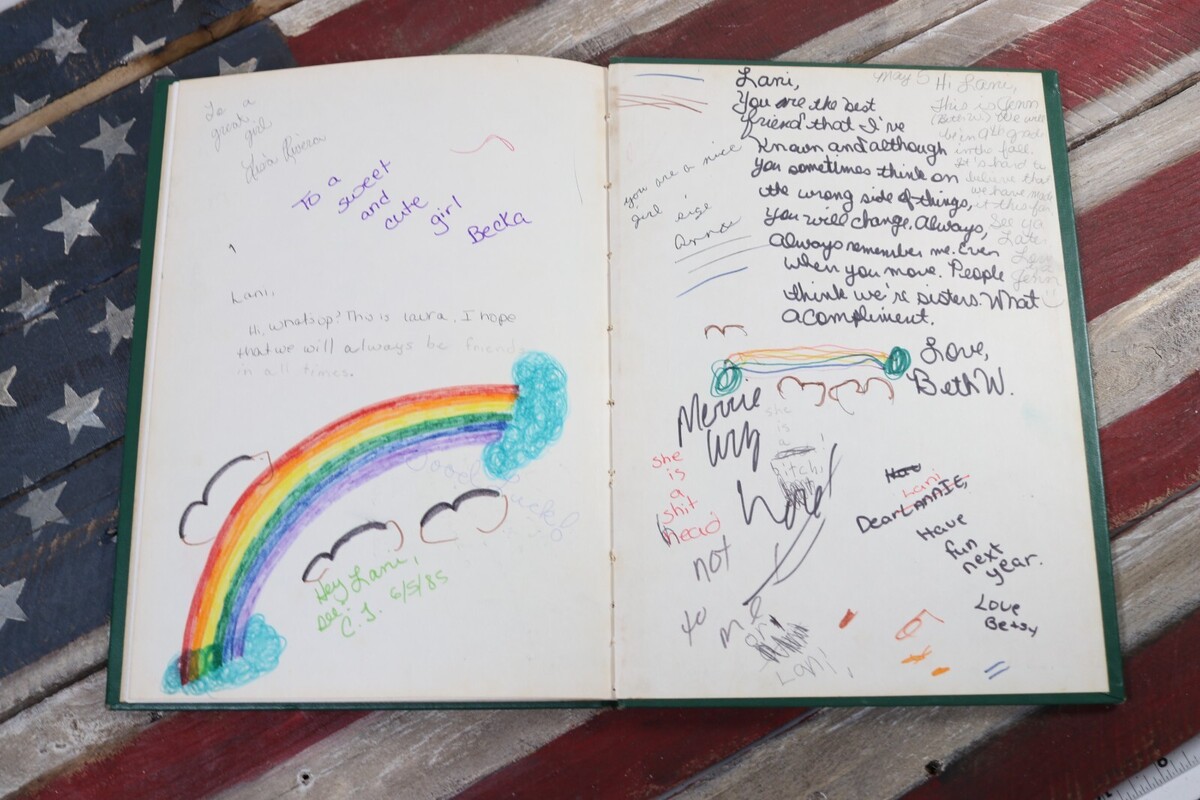 To a
great
girl
Lisa Rivera
To a
sweet
and
cute
girl
Becka
Lani,
Hi, whats up? This is Laura. I hope
that we will always be friends
in all times.
Good Luck!
Hey Lani,
C.J. 6/5/85
Lani,
You are the best
friend that I've
known and although
you sometimes think on
the wrong side of things,
you will change. Always,
always remember me. Even
when you move. People
think we're sisters. What
a compliment.
Love,
Beth W.
May 5
Hi Lani,
This is Jenn
(Beth W.) We will
be in 9th grd
in the fall.
It's hard to
believe that
we have made
it this far
See ya
Late
Love
Jenn
you are a nice
girl
Anna
she
is
a
bitch!
she
is
a
shit
head
not
to
me
or
Lani,
Dear Lani
LANNIE,
Have
fun
next
year.
Love
Betsy